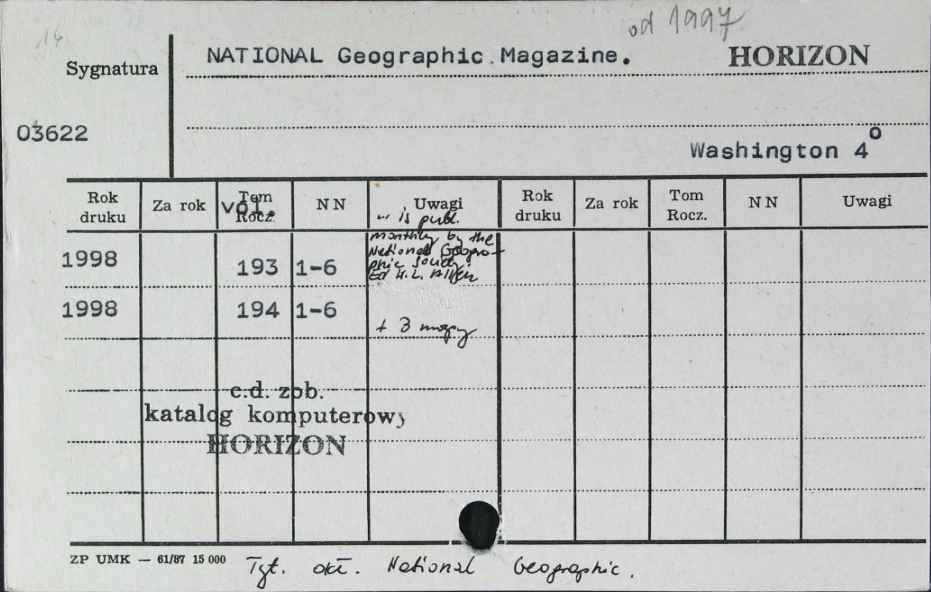 14
od 1997
NATIONAL Geographic Magazine. HORIZON
Sygnatura
03622
Washington 4°
Rok druku Za rok Tom Rocz. vol. NN Uwagi Rok druku Za rok Tom Rocz. NN Uwagi
" is publ.
monthly by the
National Geogra-
phic
Ed H. L.
1998 193 1-6
1998 194 1-6
+ 3 mapy
c.d. zob.
katalog komputerowy
HORIZON
ZP UMK — 61/87 15 000
Tyt. okł. National Geographic.